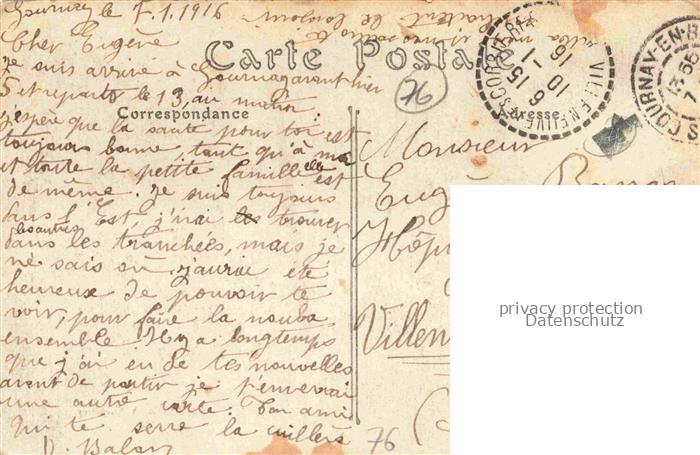 Gournay le 7.1.1916
Cher Eugène
Je suis arrivé à Gournay avant hier
et repartz le 13, au matin
j'espère que la santé pour toi est
toujours bonne, tant qu'à moi
et toute la petite famille elle est
de même. Je suis toujours
dans l'Est, j'irai les trouver
les autres
dans les tranchées, mais je
ne sais où, j'aurai été
heureux de pouvoir te
voir, pour faire la nouba
ensemble. Il y a longtemps
que j'ai eu de tes nouvelles
avant de partir je t'enverrai
une autre carte. Ton ami
qui te serre la cuillère
Carte Postale
Correspondance
76
Adresse
VILLENEUVE
6 15
10 - 1
16
GOURNAY-EN-B
Monsieur
Eugène
Hôp
Villen
76
privacy protection
Datenschutz